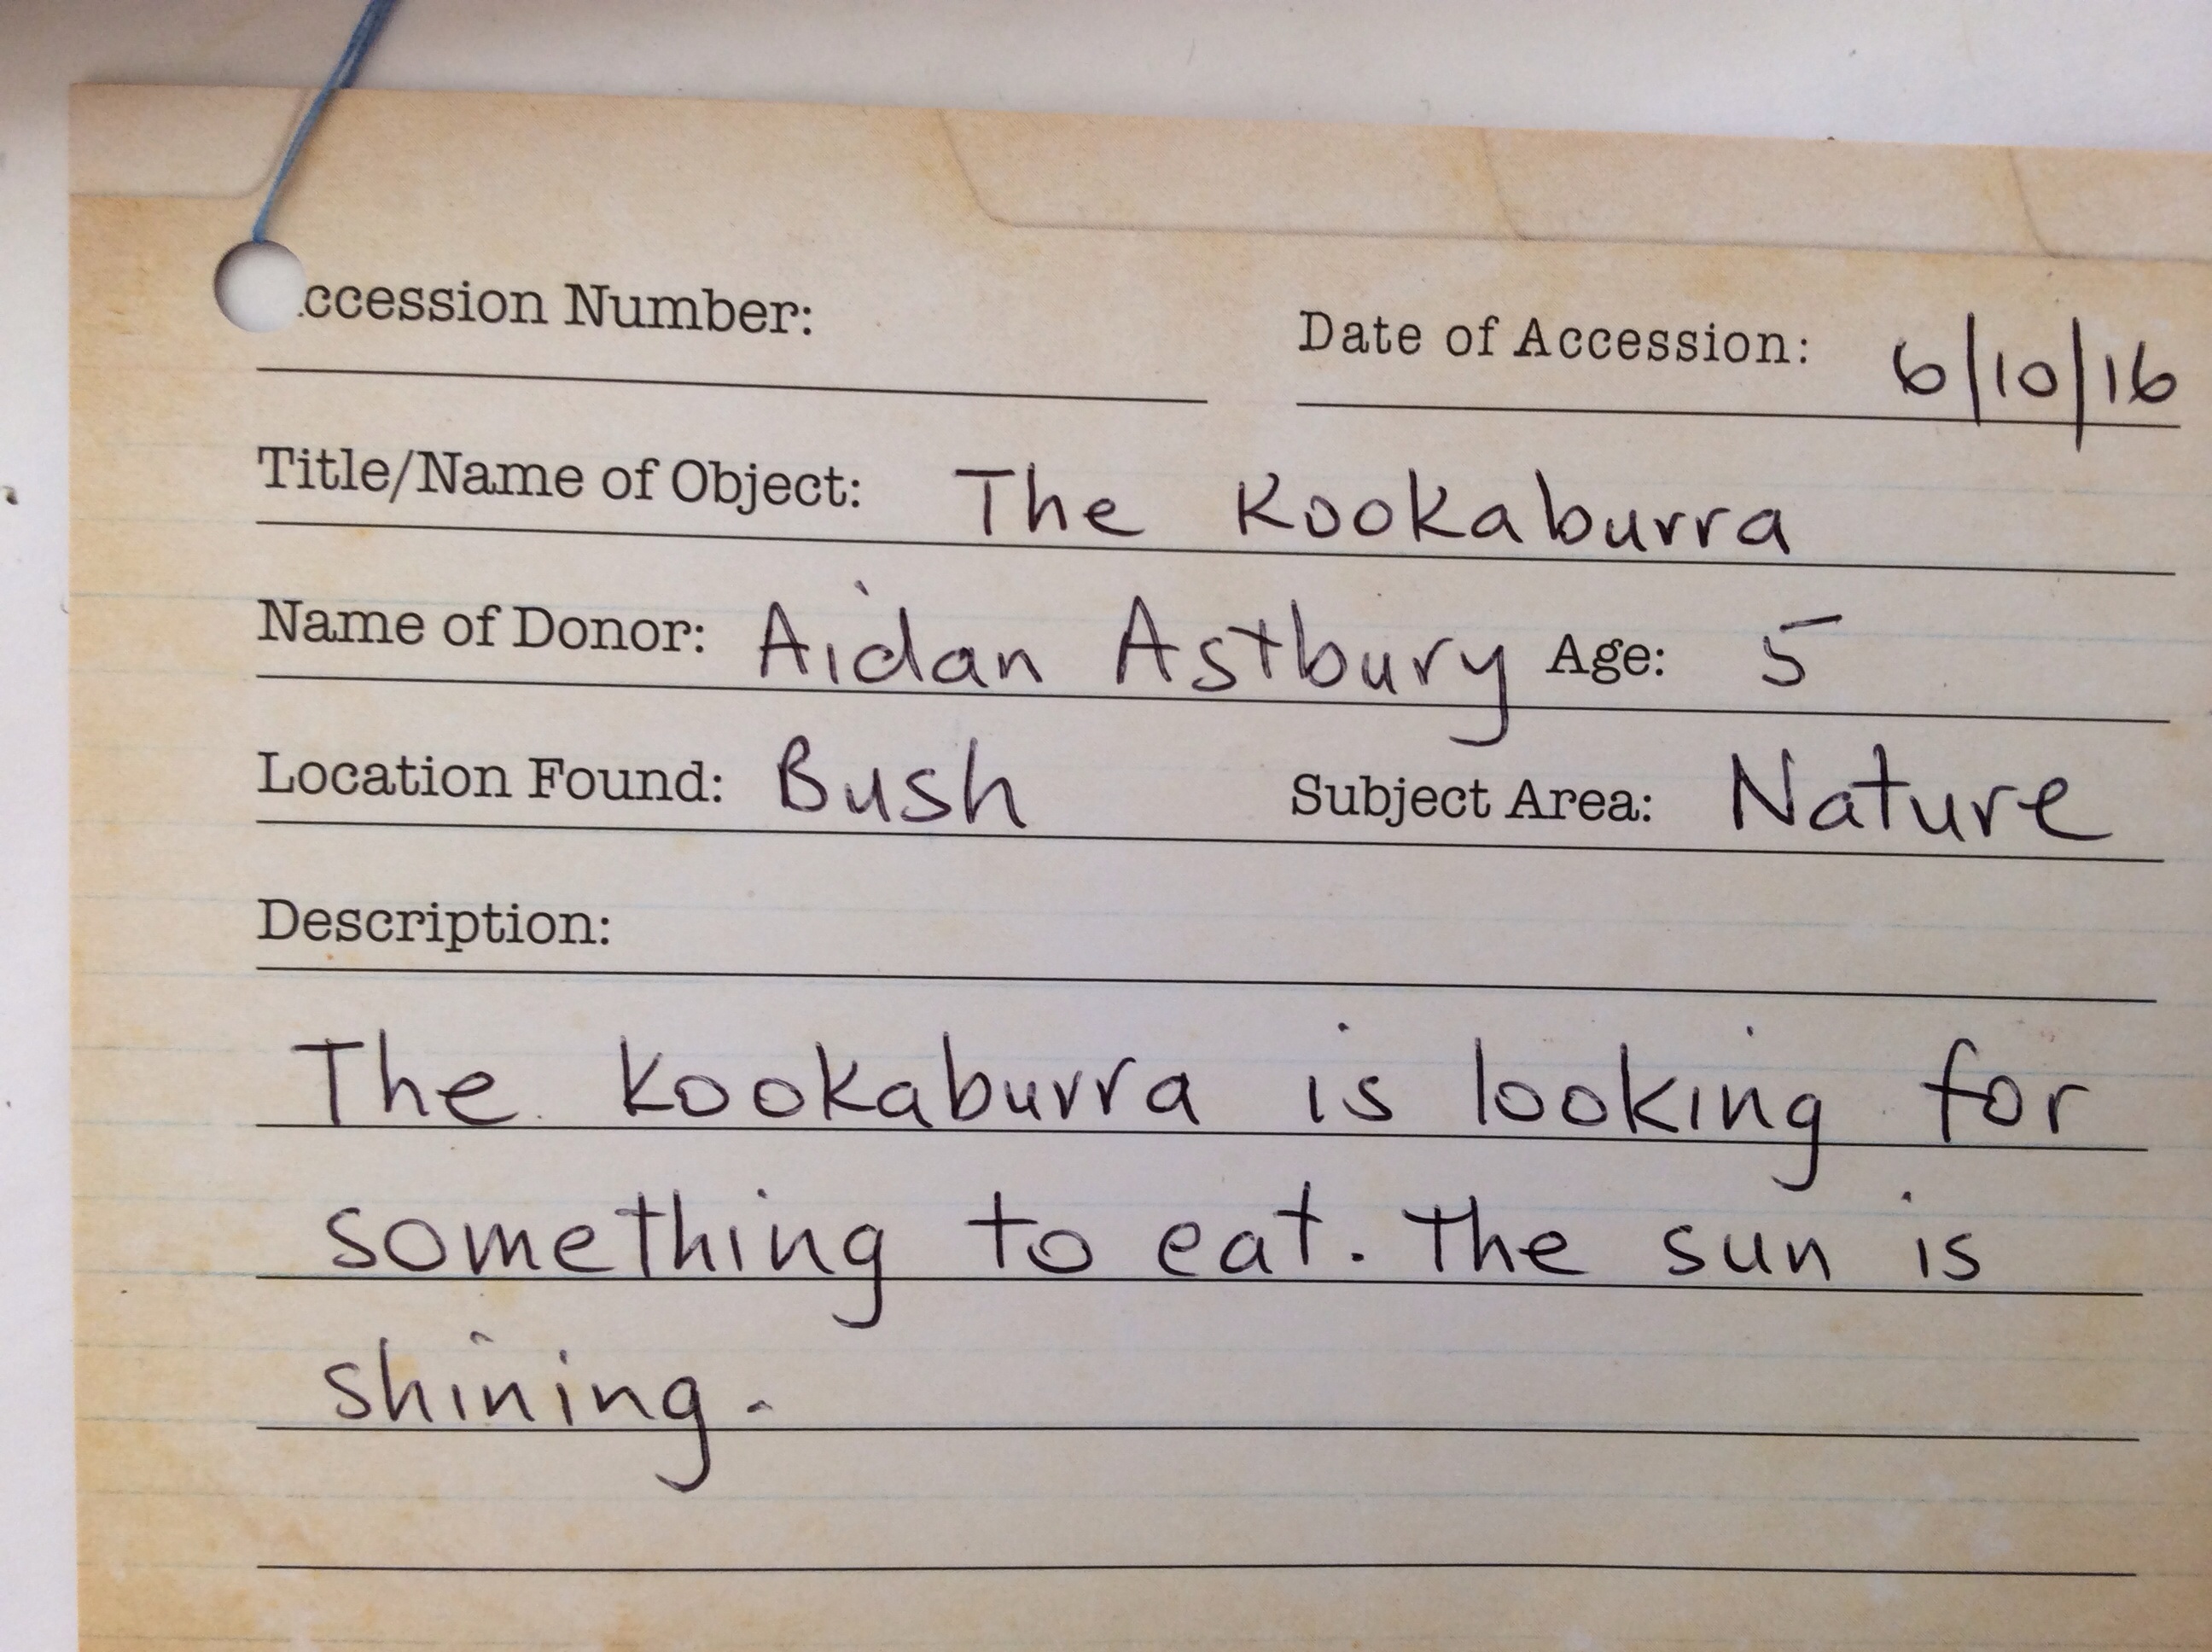 ccession Number:
Date of Accession: 6/10/16
Title/Name of Object: The Kookaburra
Name of Donor: Aidan Astbury Age: 5
Location Found: Bush Subject Area: Nature
Description:
The kookaburra is looking for
something to eat. The sun is
shining.